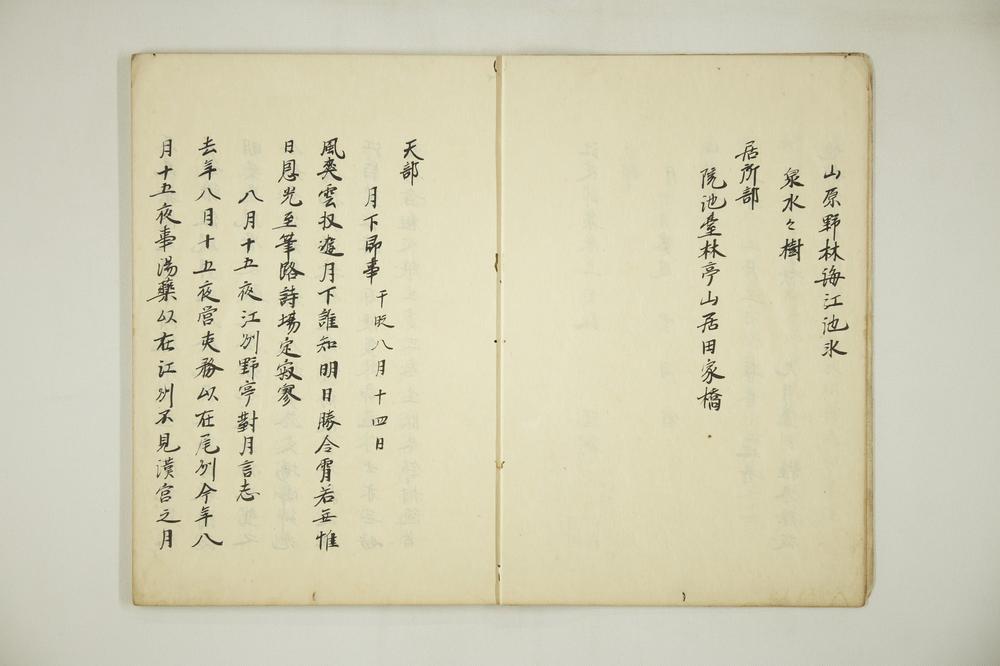 山原野林海江池氷
泉水々樹
居所部
院池臺林亭山居田家橋
天部
月下即事 于时八月十四日
風爽雲収遊月下誰知明日勝今霄若無惟
日恩光至筆路詩場定寂寥
八月十五夜江州野亭對月言志
去年八月十五夜営吏務以在尾州今年八
月十五夜事湯藥以在江州不見漢宮之月